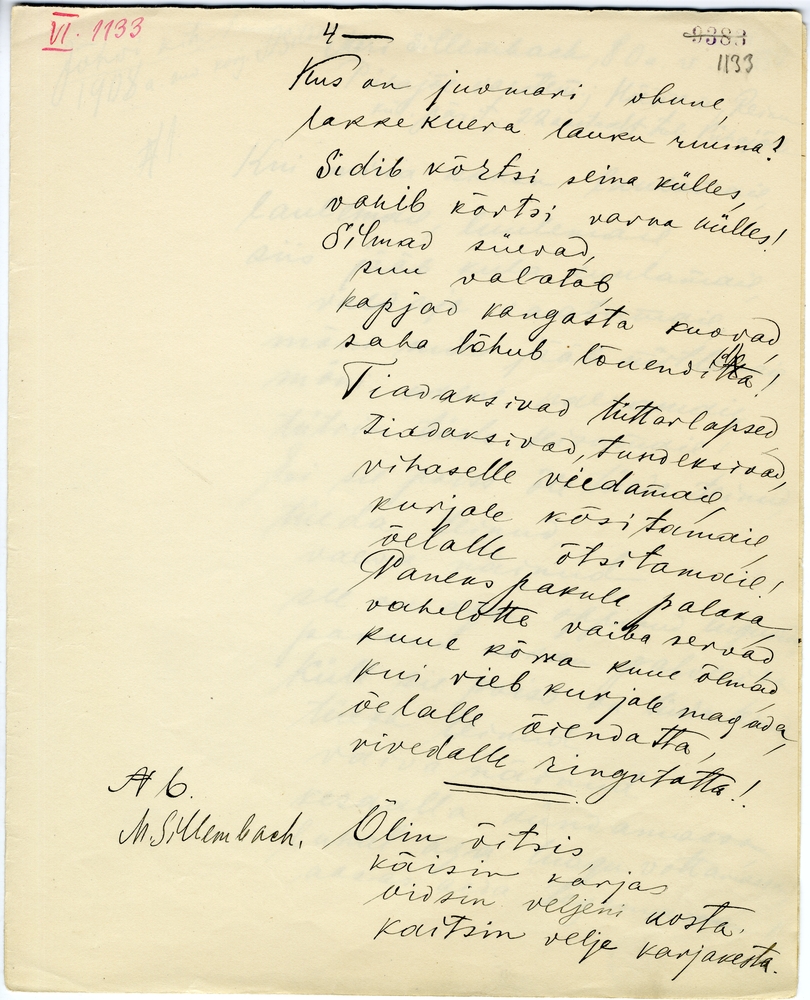 VI. 1133
4—
9383
1133
Kus on juomari obune,
lakkekuera lauku ruuna?
Sidib kõrtsi seina külles,
vahib kõrtsi varna nülles!
Silmad süevad,
suu valatab
kapjad kangasta kuovad,
saba lõhub lõuendi
Tiadaksivad tüttarlapsed
tiadaksivad, tundeksivad,
vihaselle viedamaie,
kurjale kositamaie,
õelalle õtsitamaie!
Paneks pakule palaka,
vahelotte vaiba servad,
kuue kõrra kuue õlmad,
kui vieb kurjale magada,
õelalle õiendatta,
virvedalle ringutatta!
№ 6.
M. Sillembach.
Õlin õitsis,
käisin karjas
oidsin veljeni uosta.
kaitsin velje karjakesta.